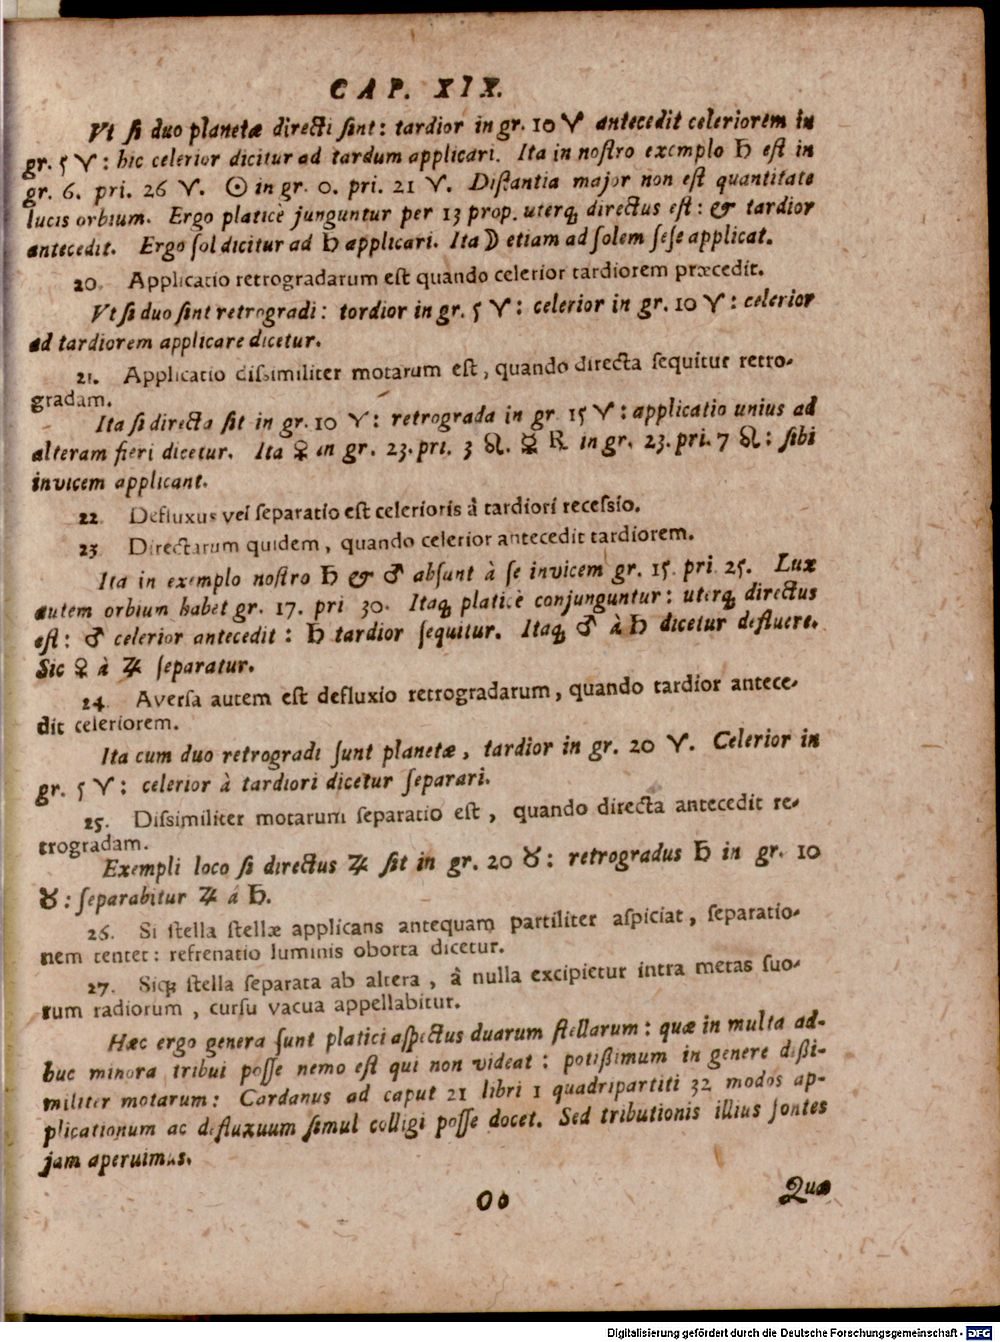 CAP. XIX.
Vt ſi duo planetæ directi ſint: tardior in gr. 10 ♈ antecedit celeriorem in
gr. 5 ♈: hic celerior dicitur ad tardum applicari. Ita in noſtro exemplo ♄ eſt in
gr. 6. pri. 26 ♈. ☉ in gr. 0. pri. 21 ♈. Diſtantia major non eſt quantitate
lucis orbium. Ergo platicè junguntur per 13 prop. uterq; directus eſt: & tardior
antecedit. Ergo ſol dicitur ad ♄ applicari. Ita ☽ etiam ad ſolem ſeſe applicat.
20. Applicatio retrogradarum eſt quando celerior tardiorem præcedit.
Vt ſi duo ſint retrogradi: tordior in gr. 5 ♈: celerior in gr. 10 ♈: celerior
ad tardiorem applicare dicetur.
21. Applicatio diſsimiliter motarum eſt, quando directa ſequitur retro-
gradam.
Ita ſi directa ſit in gr. 10 ♈: retrograda in gr. 15 ♈: applicatio unius ad
alteram fieri dicetur. Ita ♀ in gr. 23. pri. 3 ♌. ☿ ℞ in gr. 23. pri. 7 ♌: ſibi
invicem applicant.
22 Defluxus vel ſeparatio eſt celerioris à tardiori receſsio.
23 Directarum quidem, quando celerior antecedit tardiorem.
Ita in exemplo noſtro ♄ & ♂ abſunt à ſe invicem gr. 15. pri. 25. Lux
autem orbium habet gr. 17. pri 30. Itaq; platicè conjunguntur: uterq; directus
eſt: ♂ celerior antecedit: ♄ tardior ſequitur. Itaq; ♂ à ♄ dicetur defluere.
Sic ♀ à ♃ ſeparatur.
24. Averſa autem eſt defluxio retrogradarum, quando tardior antece-
dit celeriorem.
Ita cum duo retrogradi ſunt planetæ, tardior in gr. 20 ♈. Celerior in
gr. 5 ♈: celerior à tardiori dicetur ſeparari.
25. Diſsimiliter motarum ſeparatio eſt, quando directa antecedit re-
trogradam.
Exempli loco ſi directus ♃ ſit in gr. 20 ♉: retrogradus ♄ in gr. 10
♉: ſeparabitur ♃ á ♄.
26. Si ſtella ſtellæ applicans antequam partiliter aſpiciat, ſeparatio-
nem tentet: refrenatio luminis oborta dicetur.
27. Siq; ſtella ſeparata ab altera, à nulla excipietur intra metas ſuo-
rum radiorum, curſu vacua appellabitur.
Hæc ergo genera ſunt platici aſpectus duarum ſtellarum: quæ in multa ad-
huc minora tribui poſſe nemo eſt qui non videat: potißimum in genere dißi-
militer motarum: Cardanus ad caput 21 libri 1 quadripartiti 32 modos ap-
plicationum ac defluxuum ſimul colligi poſſe docet. Sed tributionis illius fontes
jam aperuimus.
Oo
Quæ
Digitalisierung gefördert durch die Deutsche Forschungsgemeinschaft - DFG